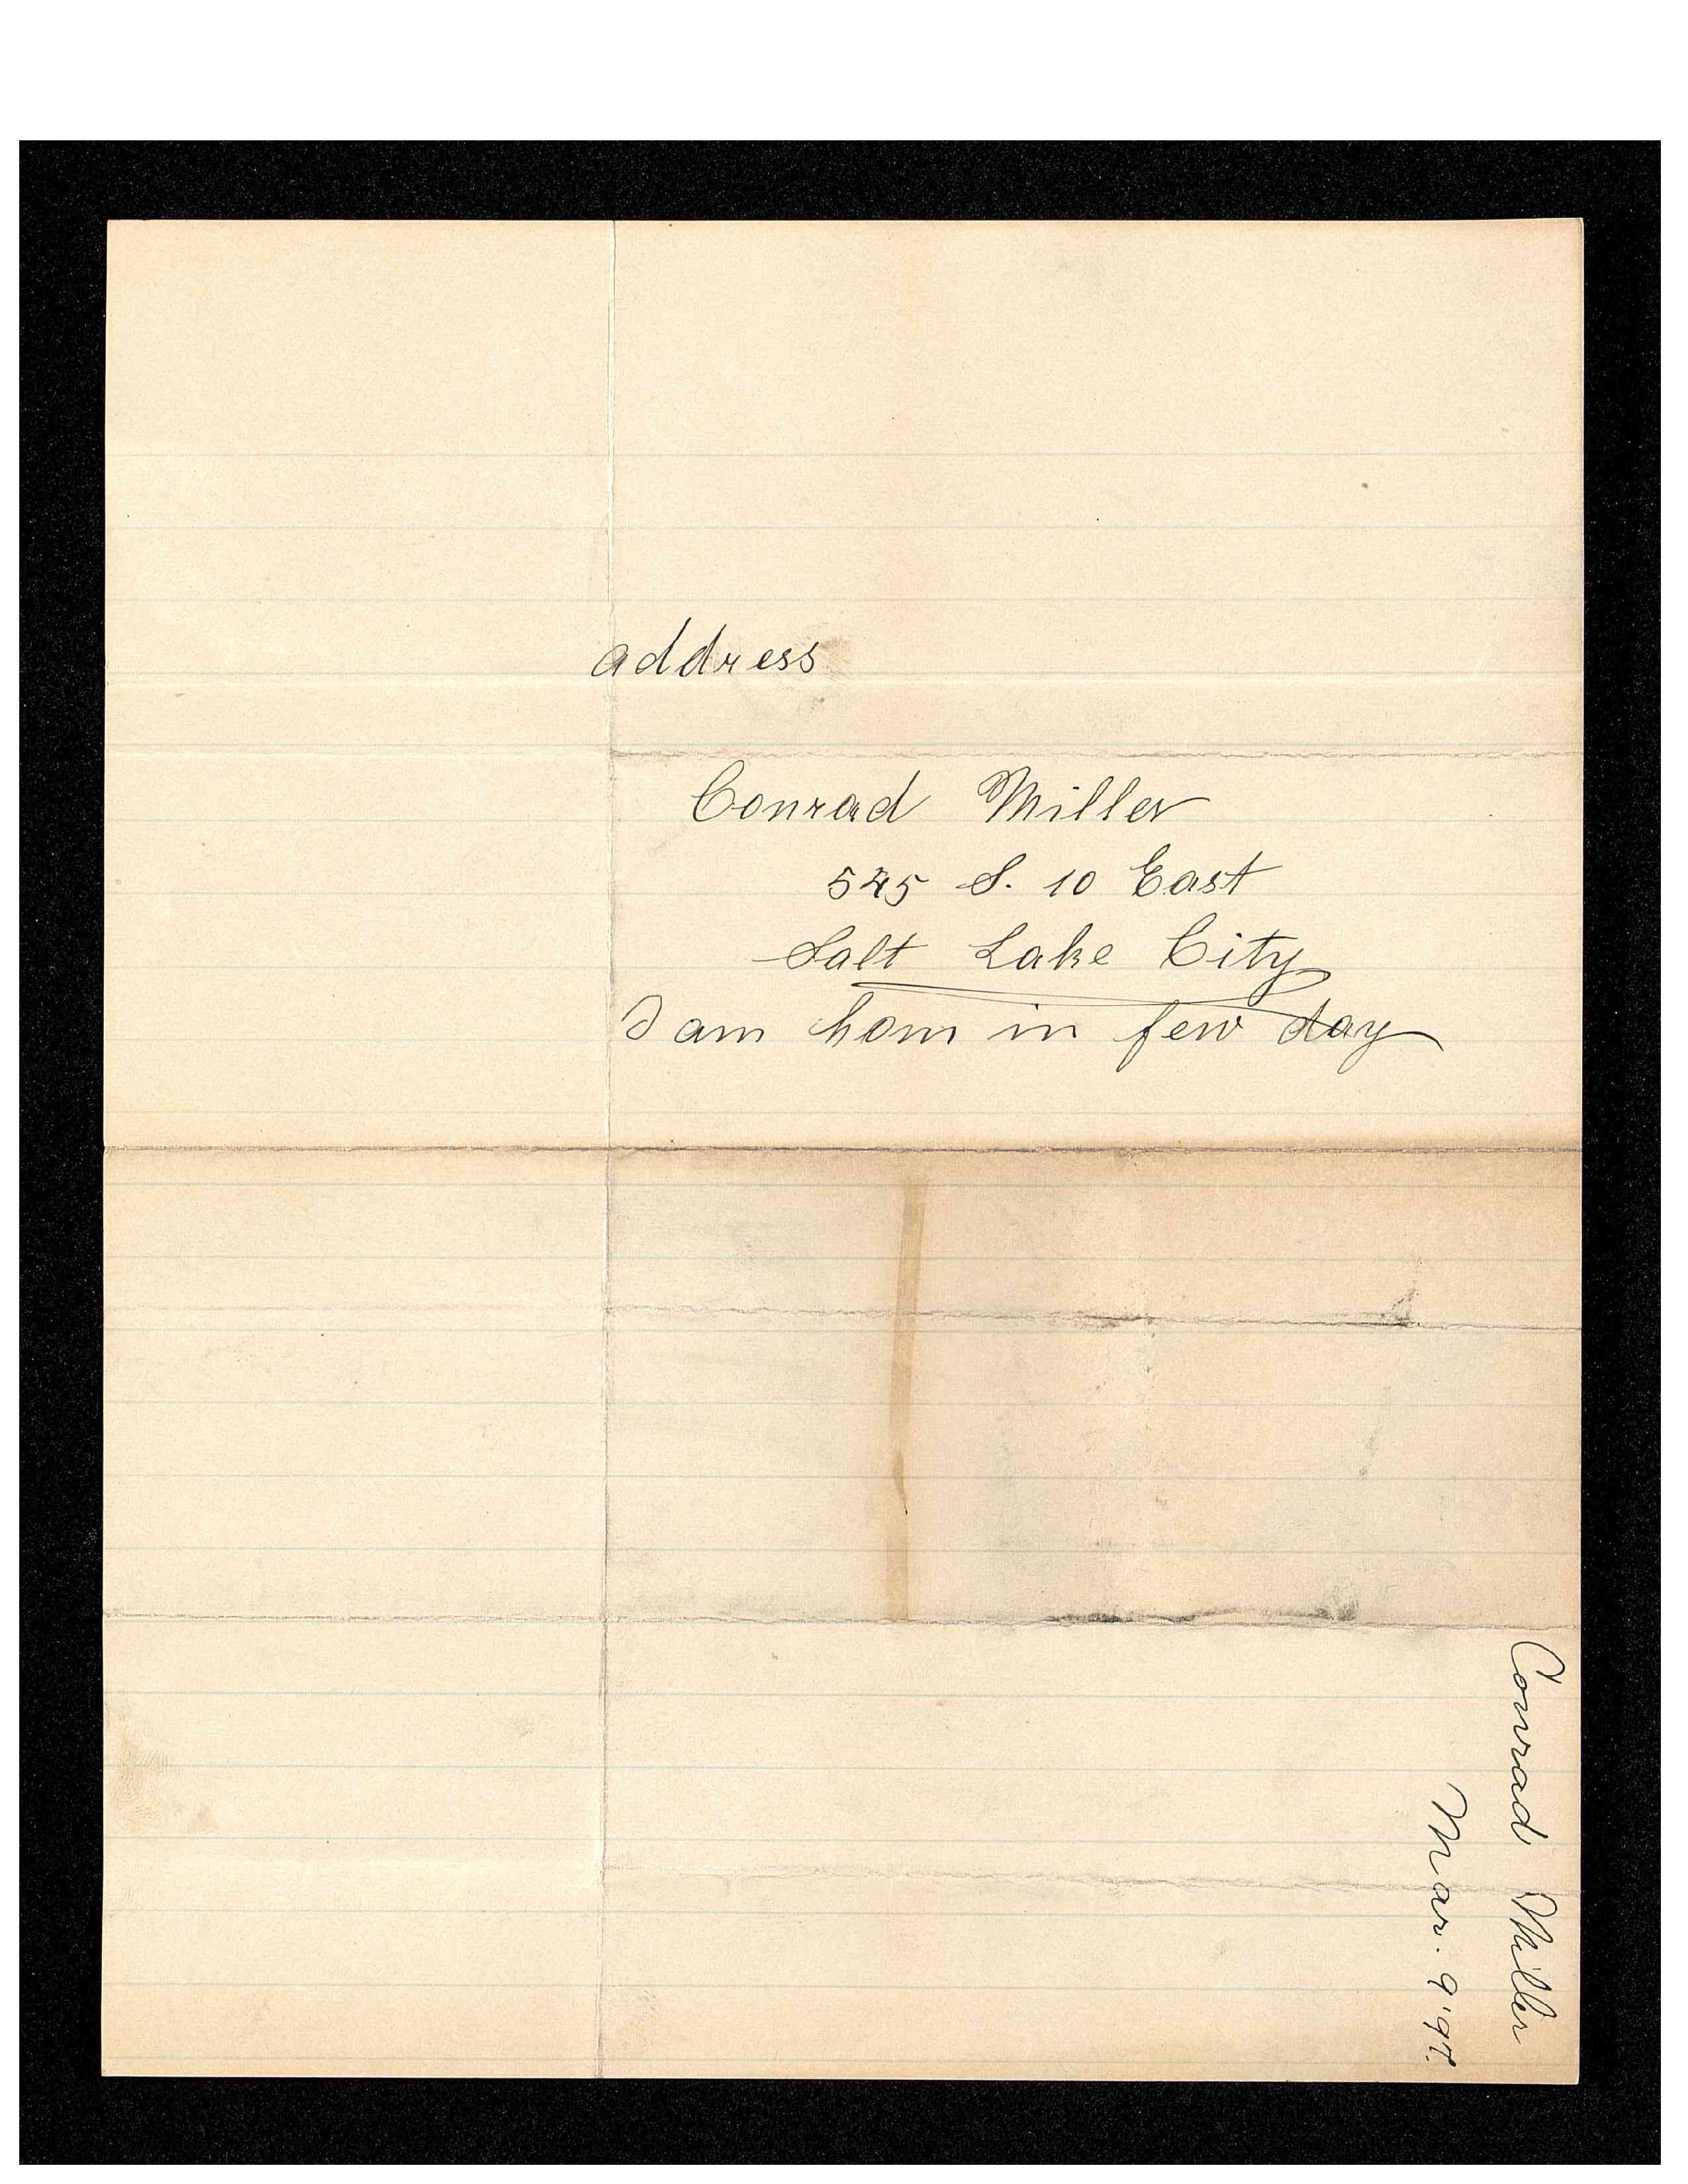 address
Conrad Miller
545 S. 10 East
Salt Lake City
I am hom in few day
Conrad Miller
Mar. 9 '97.